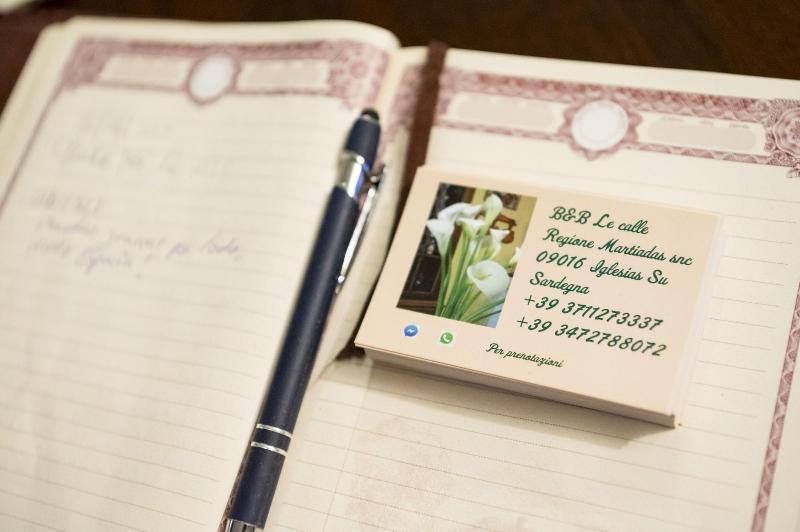 B&B Le calle
Regione Martiadas snc
09016 Iglesias Su
Sardegna
+39 3711273337
+39 3472788072
Per prenotazioni